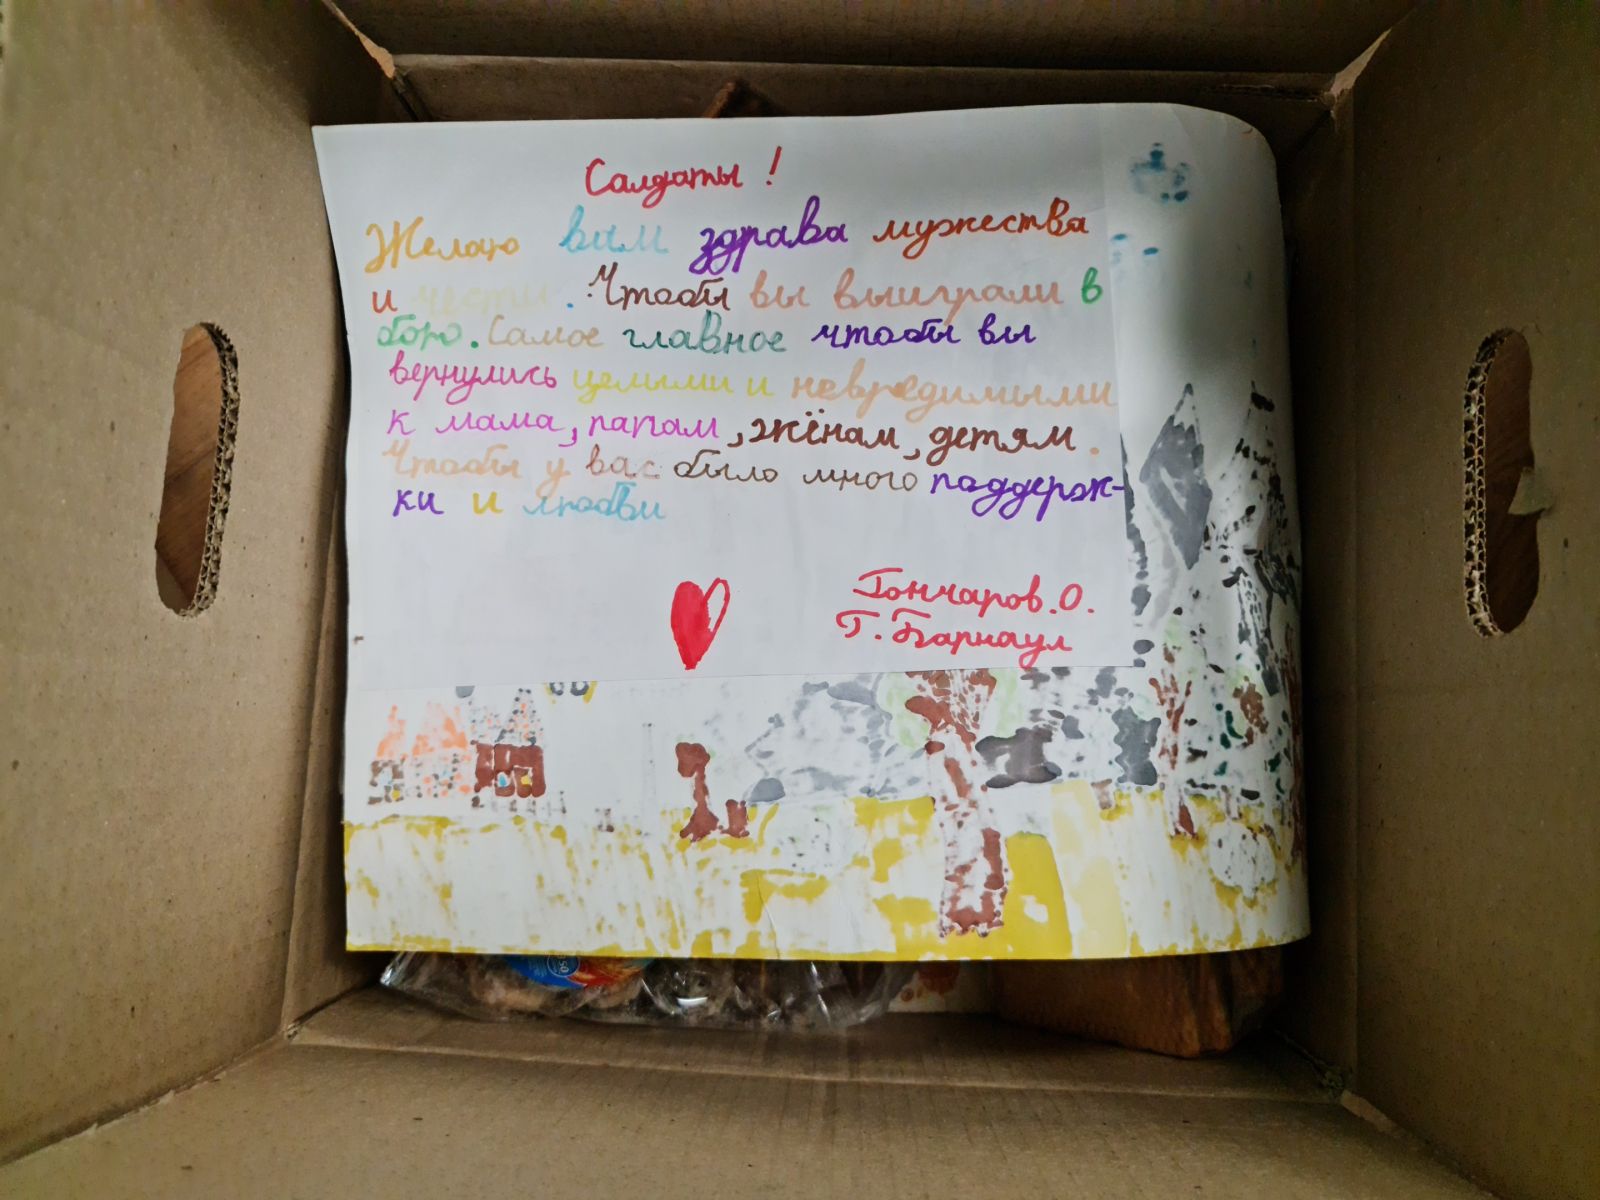 Салдаты!
Желаю вам здрава мужества
и чести. Чтобы вы выиграли в
бою. Самое главное чтобы вы
вернулись целыми и невредимыми
к мама, папам, жёнам, детям.
Чтобы у вас было много паддерж-
ки и любви
Гончаров.О.
Г. Барнаул